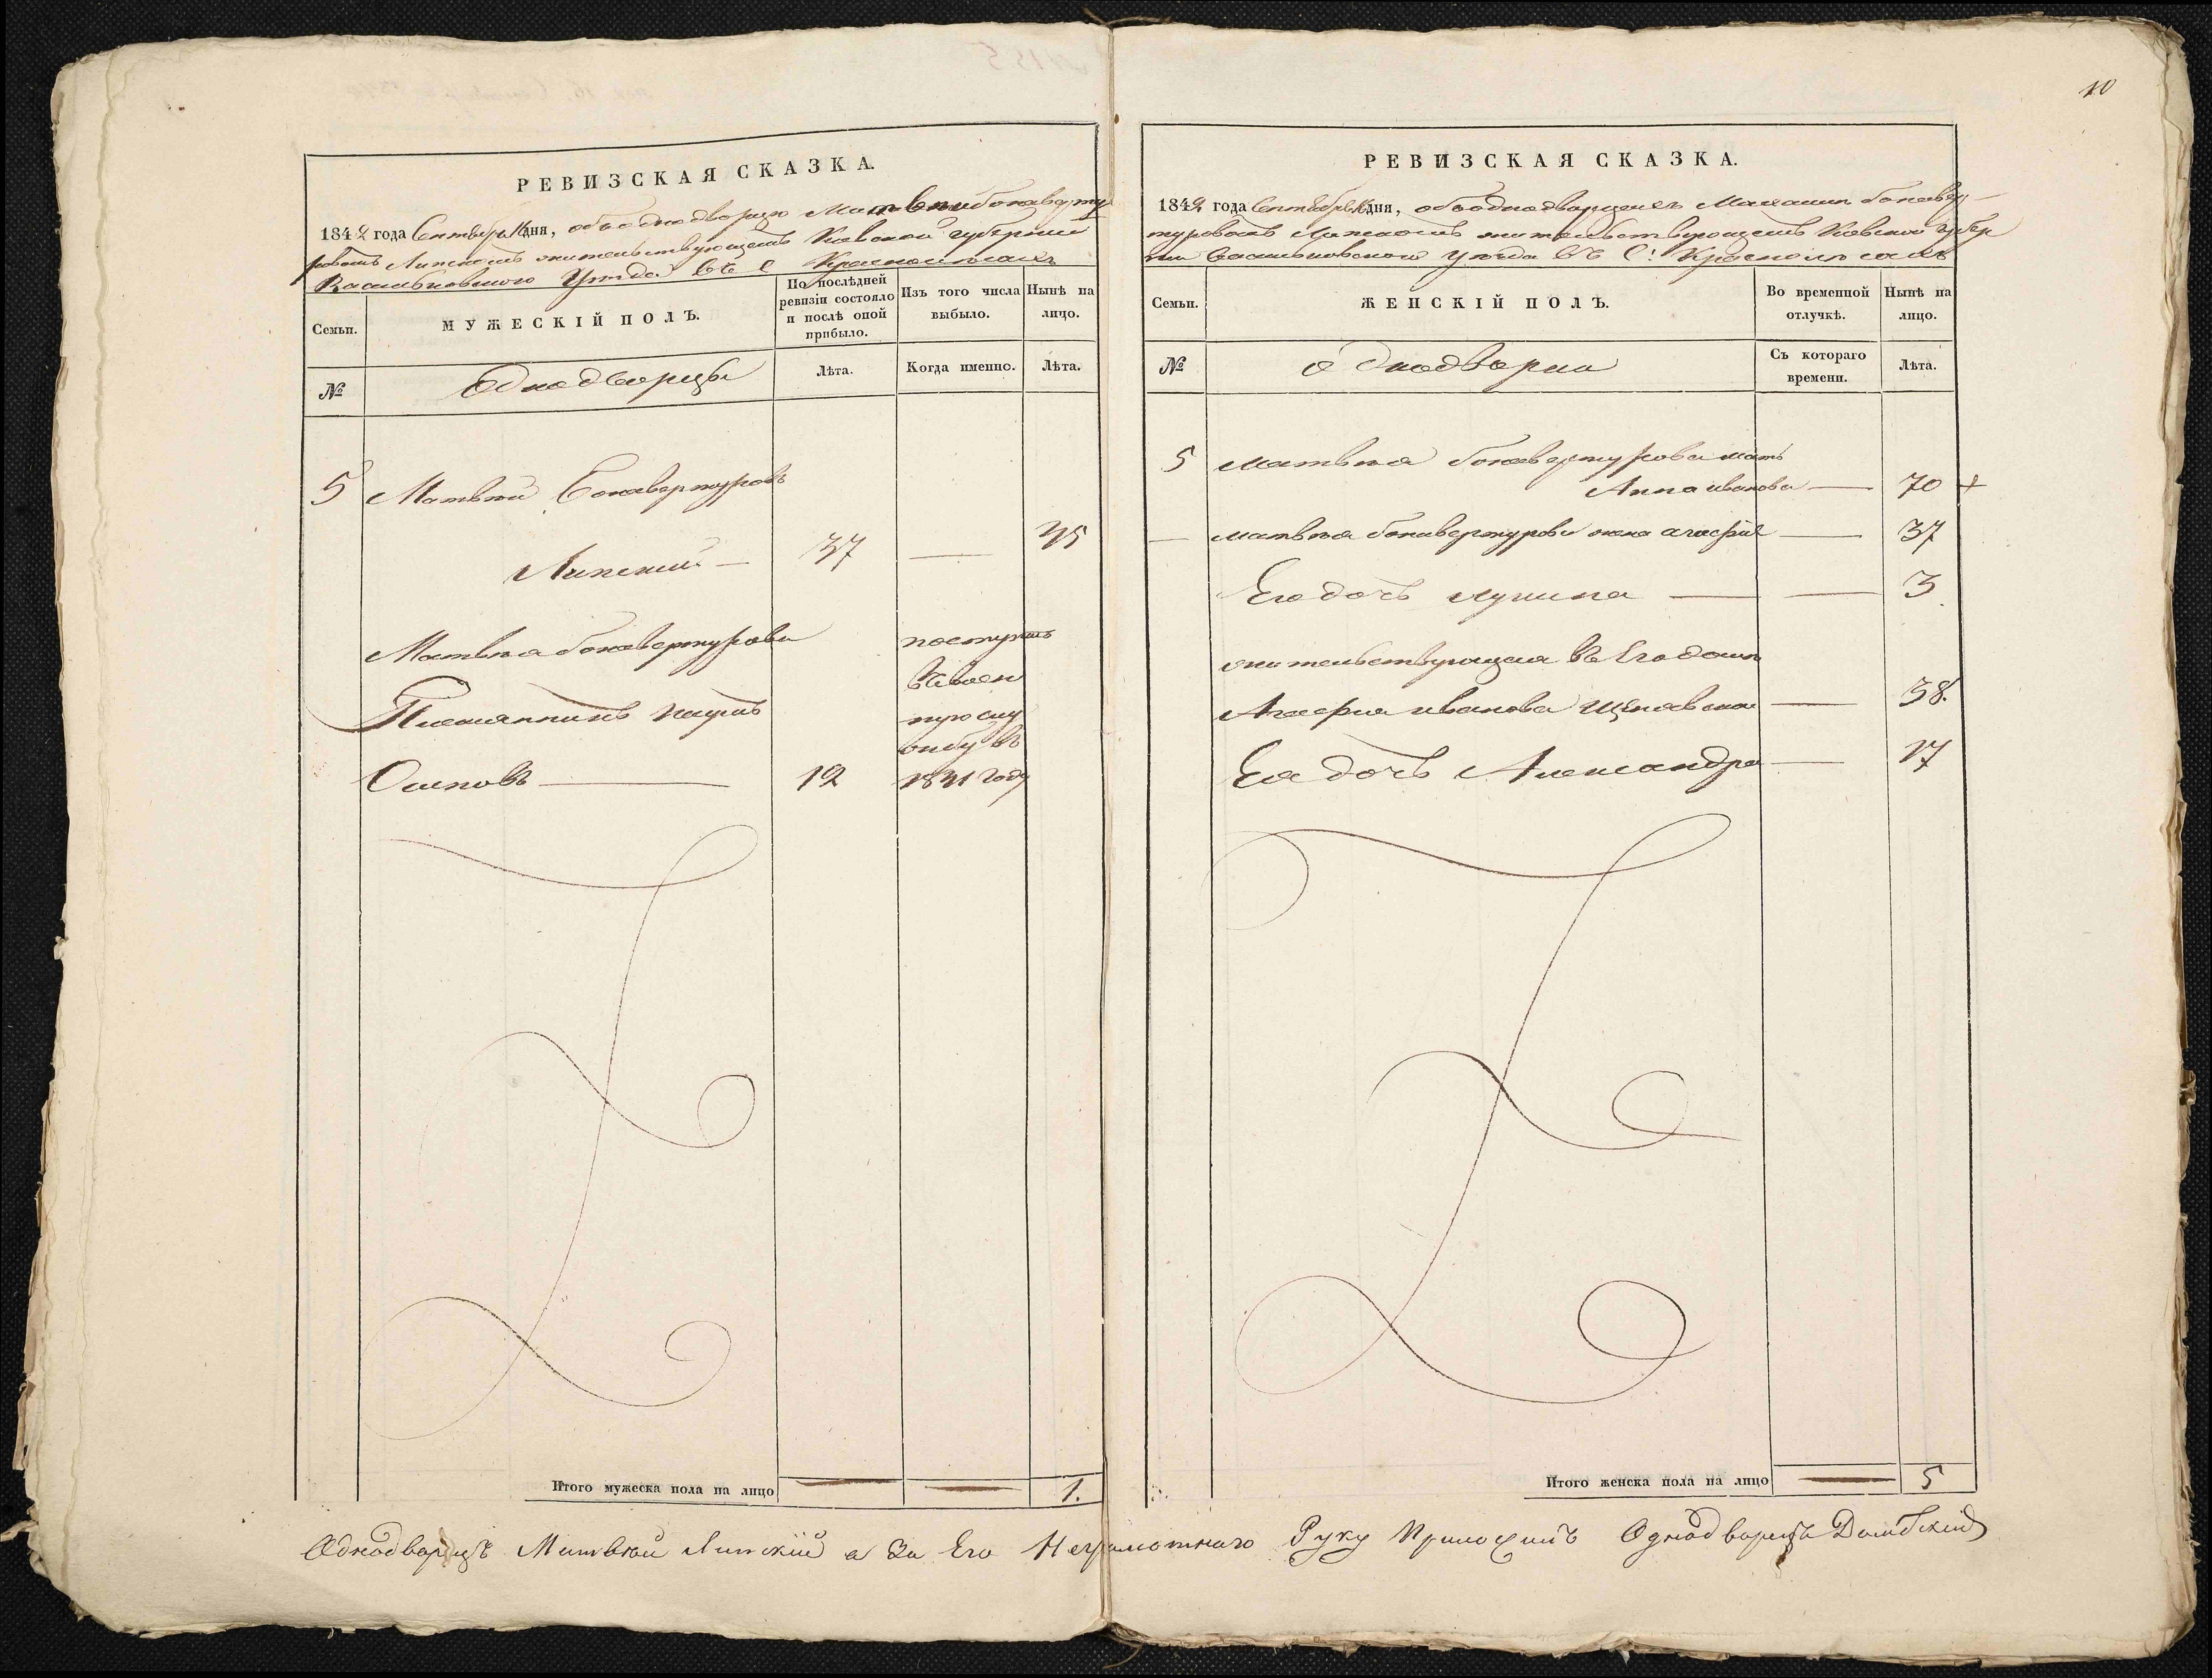 10
РЕВИЗСКАЯ СКАЗКА.
1842 года Сентября 16 дня, объ однодворце Матвеи бонаверту
ровомъ Липскомъ жительствующемъ Киевской губернии
Васильковского Уезда въ С Красномъ
Семьи.
МУЖЕСКІЙ ПОЛЪ.
По послѣдней ревизіи состояло и послѣ оной прибыло.
Изъ того числа выбыло.
Нынѣ на лицо.
№
Однодворцы
Лѣта.
Когда именно.
Лѣта.
5 Матвей Бонавертуровъ
Липский — 37 — 45
Матвея бонавертурова
Племянникъ Наумъ
Осиповъ — 12
поступилъ
въ воен
ную слу
жбу въ
1841 году
Итого мужеска пола на лицо 1.
РЕВИЗСКАЯ СКАЗКА.
1842 года Сентября 16 дня, объ однодворце бонавер
туровомъ Липскомъ жительствующемъ Киевской губер
нии Васильковского Уезда въ С: Красномъ
Семьи.
ЖЕНСКІЙ ПОЛЪ.
Во временной отлучкѣ.
Нынѣ на лицо.
№
однодворки
Съ котораго времени.
Лѣта.
5 Матвея бонавертурова мать
Анна иванова — 70 +
— матвея бонавертурова жена — 37
Его дочь — — 3
жительствующая въ Его доме
Агафия иванова — 38.
Ея дочь Александра — 17
Итого женска пола на лицо 5
Однодворецъ Матвей Липский а За Его Неграмотнаго Руку Приложилъ Однодворецъ Домбский